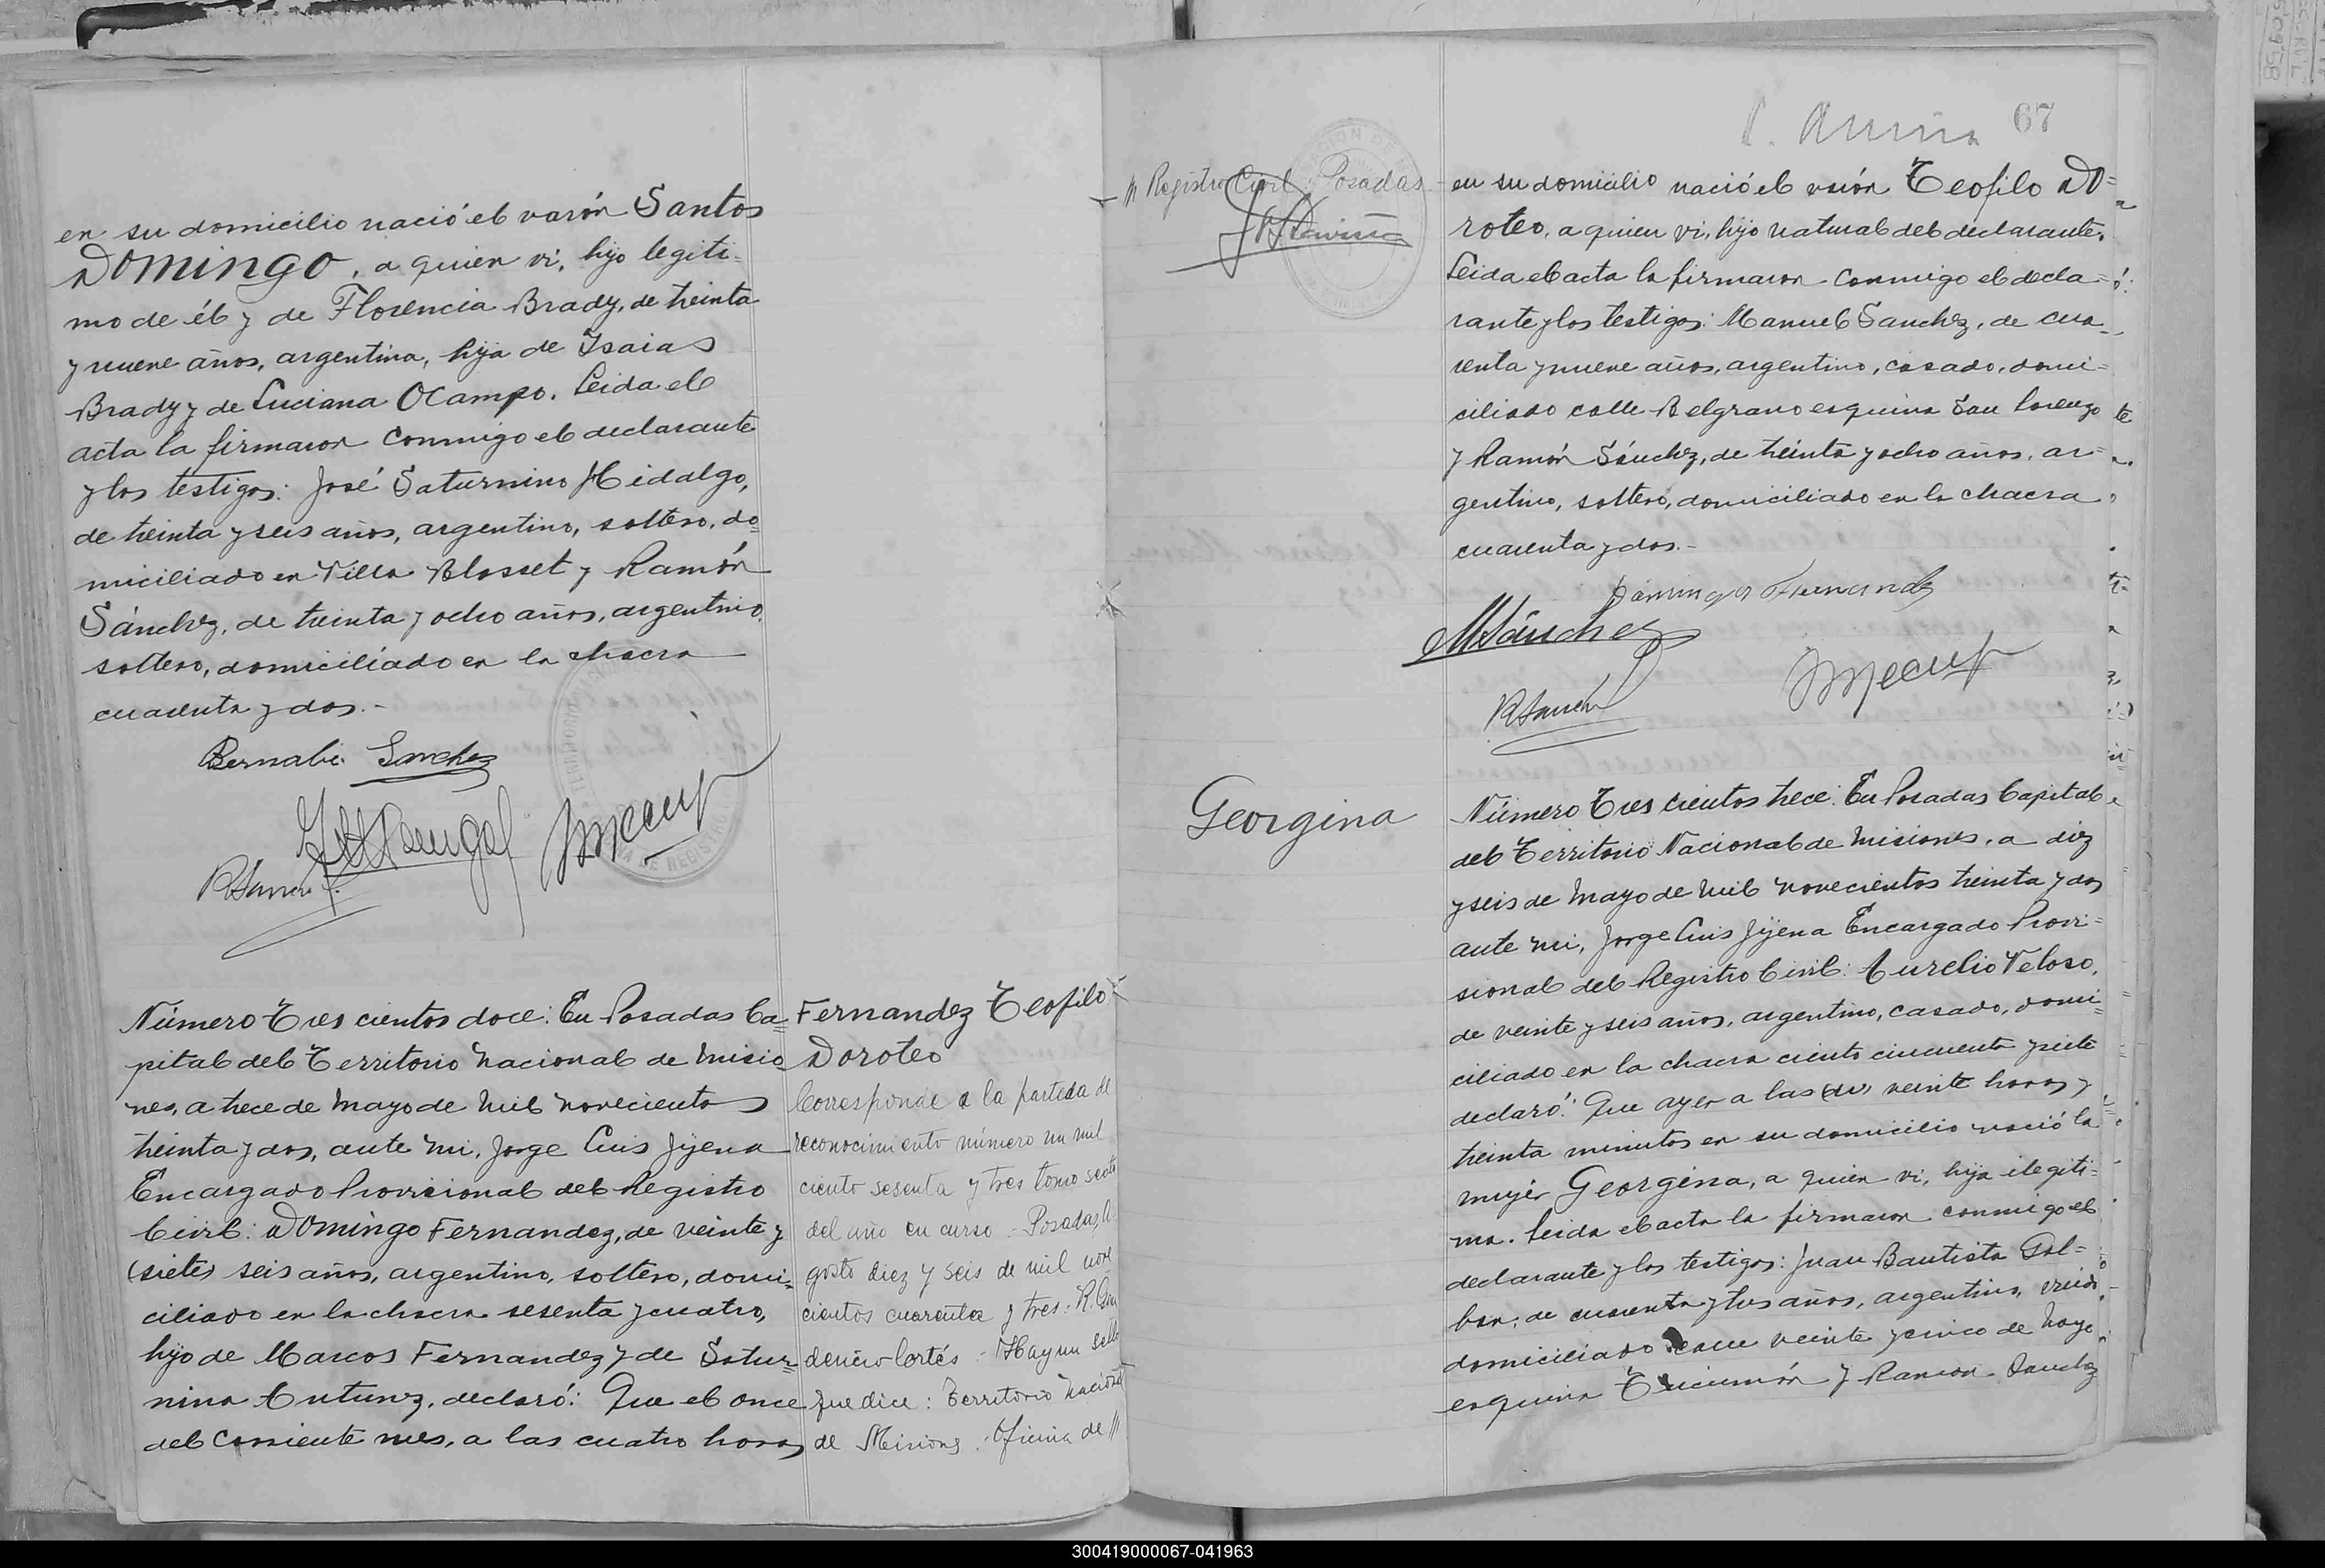 en su domicilio nació el varón Santos
Domingo, a quien vi, hijo legiti=
mo de él y de Florencia Brady, de treinta
y nueve años, argentina, hija de Isaias
Brady y de Luciana Ocampo. Leida el
acta la firmaron conmigo el declarante
y los testigos: José Saturnino Hidalgo,
de treinta y seis años, argentino, soltero, do=
miciliado en Villa Blosset y Ramón
Sánchez, de treinta y ocho años, argentino,
soltero, domiciliado en la chacra
cuarenta y dos.-
Bernabé Sanchez
Número Tres cientos doce: En Posadas Ca=
pital del Territorio Nacional de Misio=
nes, a trece de Mayo de Mil novecientos
treinta y dos, ante mi, Jorge Luis Jijena
Encargado Provisional del Registro
Civil: Domingo Fernandez, de veinte y
(siete) seis años, argentino, soltero, domi=
ciliado en la chacra sesenta y cuatro,
hijo de Marcos Fernandez y de Satur=
nina Antunez, declaró: Que el once
del corriente mes, a las cuatro horas
Fernandez Teofilo
Doroteo
Corresponde a la partida de
reconocimiento número un mil
ciento sesenta y tres tomo sexto
del año en curso - Posadas, A
gosto diez y seis de mil nove
cientos cuarenta y tres: R. Gen
denero Cortés - Hay un sello
que dice: Territorio Nacional
de Misiones. Oficina de
67
Registro Civil Posadas
en su domicilio nació el varón Teofilo Do=
roteo, a quien vi, hijo natural del declarante.
Leida el acta la firmaron conmigo el decla=
rante y los testigos: Manuel Sanchez, de cua=
renta y nueve años, argentino, casado, domi=
ciliado calle Belgrano esquina San Lorenzo
y Ramón Sánchez, de treinta y ocho años, ar=
gentino, soltero, domiciliado en la chacra
cuarenta y dos.-
Domingo Fernandez
MSánchez
Georgina
Número Tres cientos trece: En Posadas Capital
del Territorio Nacional de Misiones, a diez
y seis de Mayo de Mil novecientos treinta y dos
ante mi, Jorge Luis Jijena Encargado Provi=
sional del Registro Civil: Aurelio Veloso,
de veinte y seis años, argentino, casado, domi=
ciliado en la chacra ciento cincuenta y siete
declaró: Que ayer a las veinte horas y
treinta minutos en su domicilio nació la
mujer Georgina, a quien vi, hija ilegiti=
ma. Leida el acta la firmaron conmigo el
declarante y los testigos: Juan Bautista Gal=
ban, de cuarenta y tres años, argentino, viudo
domiciliado calle veinte y cinco de Mayo
esquina Tucumán y Ramón Sanchez
300419000067-041963